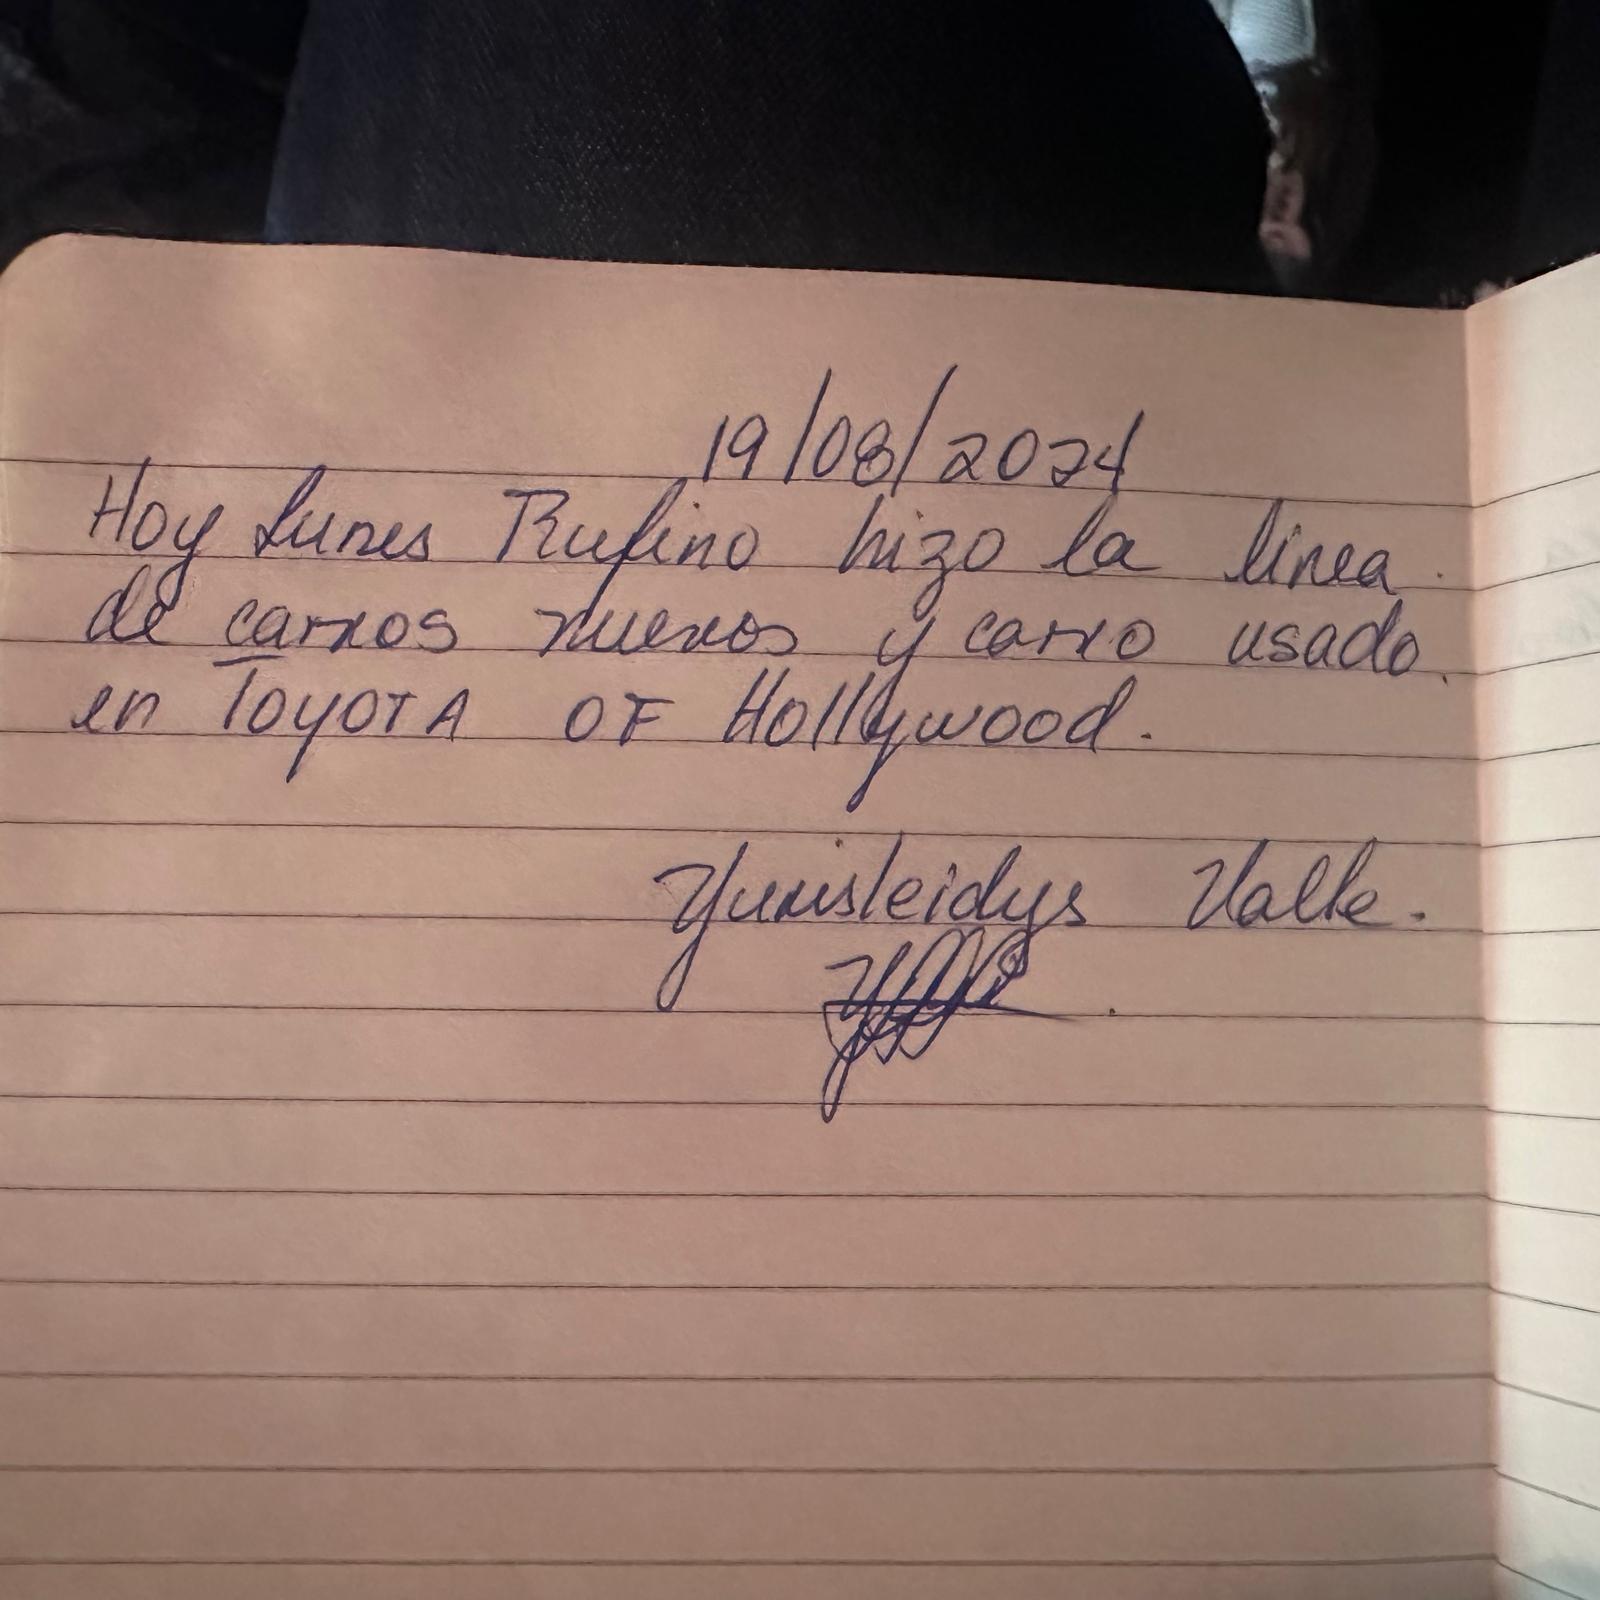 19/08/2024
Hoy Lunes Rufino hizo la linea
de carros nuevos y carro usado
en TOYOTA OF Hollywood.
Yurisleidys Valle.